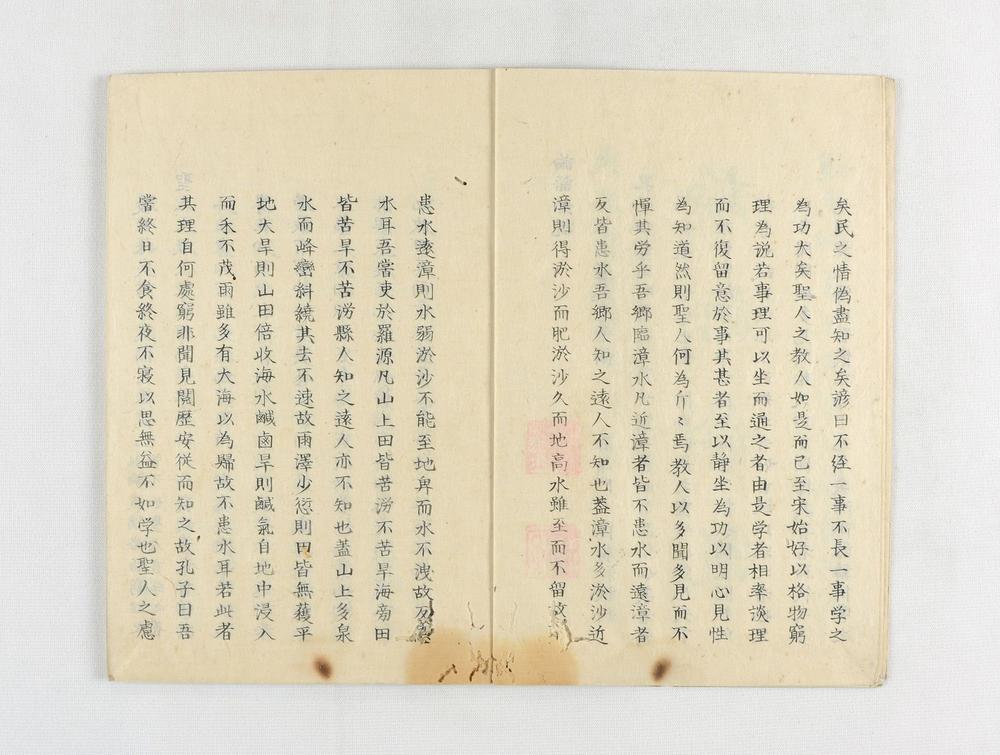 矣民之情偽盡知之矣諺曰不経一事不長一事学之
為功大矣聖人之教人如是而已至宋始好以格物窮
理為說若事理可以坐而通之者由是学者相率談理
而不復留意於事其甚者至以静坐為功以明心見性
為知道然則聖人何為斤〻焉教人以多聞多見而不
憚其労乎吾鄉臨漳水凡近漳者皆不患水而遠漳者
反皆患水吾鄉人知之遠人不知也葢漳水多淤沙近
漳則得淤沙而肥淤沙久而地高水雖至而不留故
患水遠漳則水弱淤沙不能至地卑而水不洩故反
水耳吾嘗吏於羅源凡山上田皆苦澇不苦旱海旁田
皆苦旱不苦澇縣人知之遠人亦不知也蓋山上多泉
水而峰巒斜繞其去不速故雨澤少愆則田皆無穫平
地大旱則山田倍收海水鹹鹵旱則鹹氣自地中浸入
而禾不茂雨雖多有大海以為歸故不患水耳若此者
其理自何處窮非聞見閱歷安從而知之故孔子曰吾
嘗終日不食終夜不寝以思無益不如学也聖人之慮